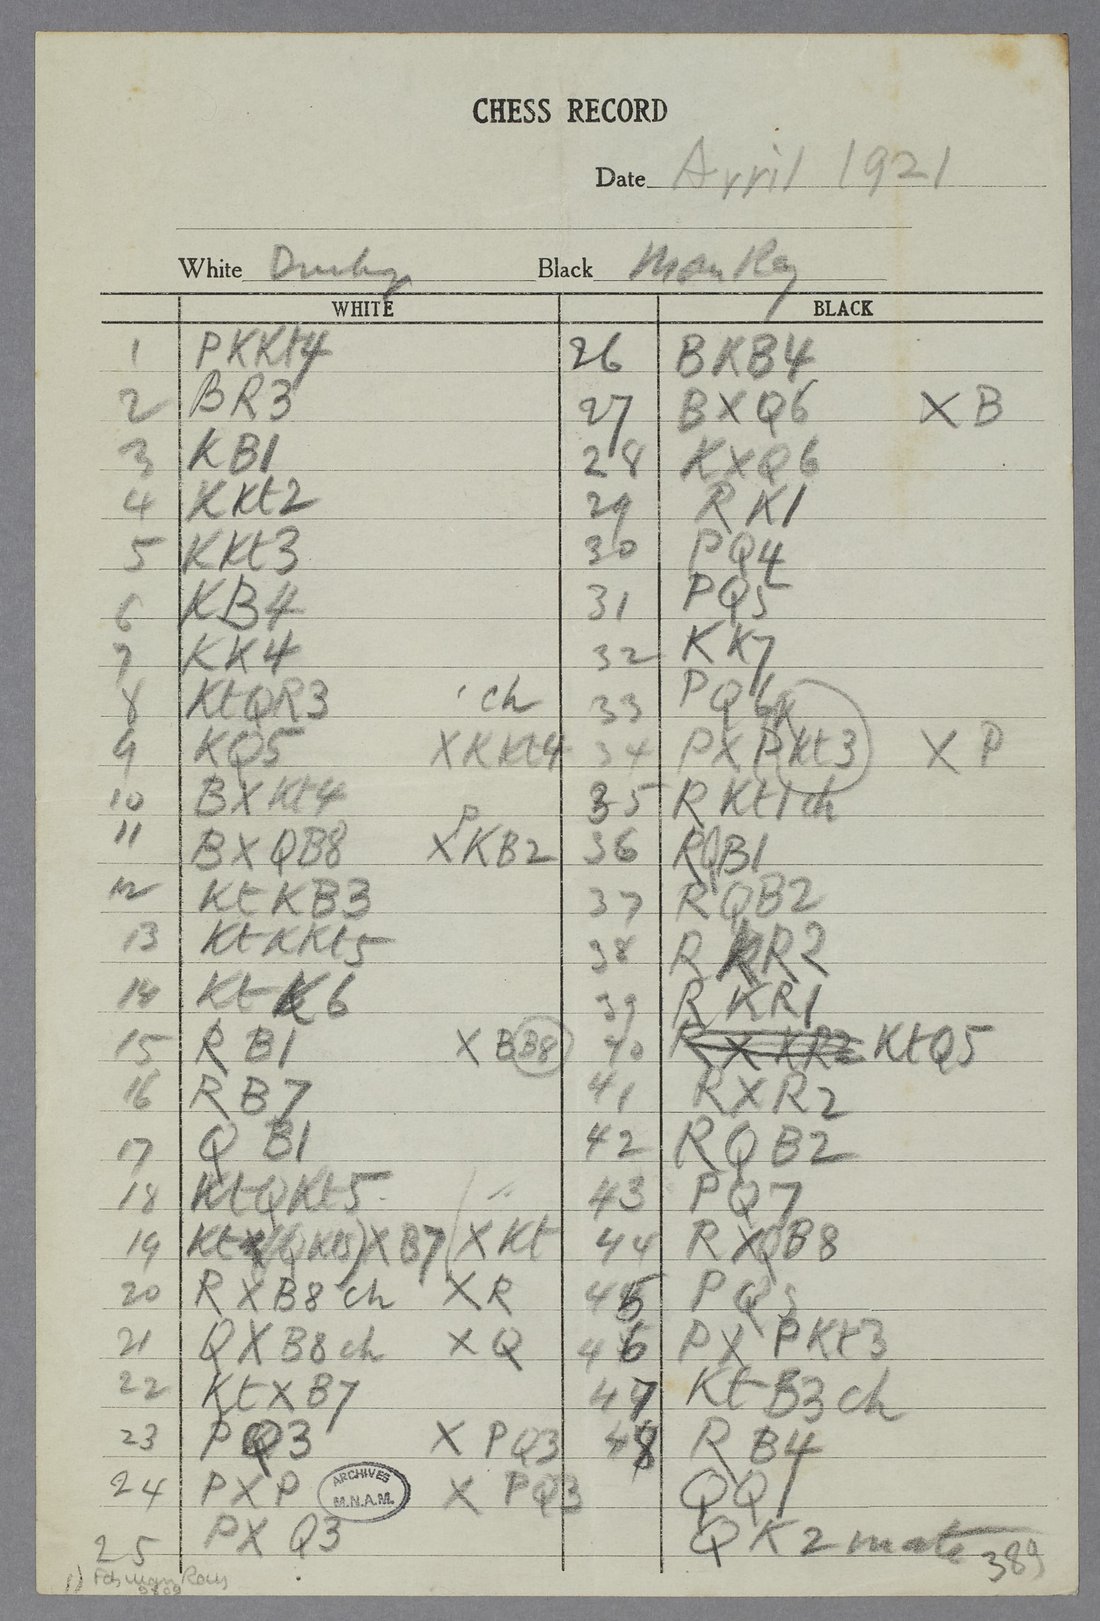 CHESS RECORD
Date April 1921
White Black Man Ray
WHITE BLACK
1 PKKt4 26 BKB4
2 BR3 27 BXQ6 X B
3 KB1 28 KXQ6
4 KKt2 29 RK1
5 KKt3 30 PQ4
6 KB4 31 PQ5
7 KK4 32 KK7
8 KtQR3 ch 33 PQ6
9 KQ5 XKKt4 34 PXPKt3 X P
10 BXKt4 35 RKt1ch
11 BXQB8 XPKB2 36 RQB1
12 KtKB3 37 RQB2
13 KtKKt5 38 R KR2
14 KtK6 39 R KR1
15 R B1 X BB8 40 R X KR2 KtQ5
16 R B7 41 RXR2
17 Q B1 42 RQB2
18 KtQKt5 43 PQ7
19 KtX(QKt5)XB7 X Kt 44 RXQB8
20 RXB8 ch X R 45 PQ
21 QXB8 ch X Q 46 PX PKt3
22 KtXB7 47 KtB3 ch
23 PQ3 X PQ3 48 R B4
24 PXP X PQ3 QQ1
25 PX Q3 QK2 mate
ARCHIVES
M.N.A.M.
389